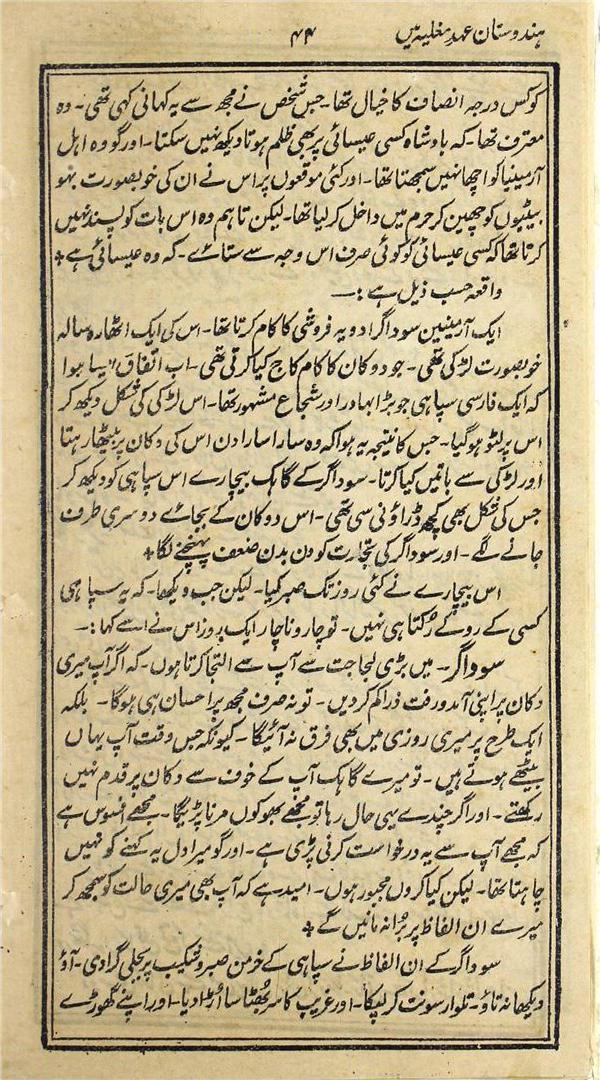 ہندوستان عہد مغلیہ میں ۴۴
کو کس درجہ انصاف کا خیال تھا۔ جس شخص نے مجھ سے یہ کہانی کہی تھی۔ وہ
معترف تھا۔ کہ بادشاہ کسی عیسائی پر بھی ظلم ہوتا دیکھ نہیں سکتا۔ اور گو وہ اہل
آرمینیا کو اچھا نہیں سمجھتا تھا۔ اور کئی موقعوں پر اس نے ان کی خوبصورت بہو
بیٹیوں کو چھین کر حرم میں داخل کر لیا تھا۔ لیکن تاہم وہ اس بات کو پسند نہیں
کرتا تھا کہ کسی عیسائی کو کوئی صرف اس وجہ سے ستائے۔ کہ وہ عیسائی ہے ٭
واقعہ حسب ذیل ہے :—
ایک آرمینین سوداگر ادویہ فروشی کا کام کرتا تھا۔ اس کی ایک اٹھارہ سالہ
خوبصورت لڑکی تھی۔ جو دوکان کا کام کاج کیا کرتی تھی۔ اب اتفاق ایسا ہوا
کہ ایک فارسی سپاہی جو بڑا بہادر اور شجاع مشہور تھا۔ اس لڑکی کی شکل دیکھ کر
اس پر لٹو ہو گیا۔ جس کا نتیجہ یہ ہوا کہ وہ سارا سارا دن اس کی دکان پر بیٹھا رہتا
اور لڑکی سے باتیں کیا کرتا۔ سوداگر کے گاہک بیچارے اس سپاہی کو دیکھ کر
جس کی شکل بھی کچھ ڈراؤنی سی تھی۔ اس دوکان کے بجائے دوسری طرف
جانے لگے۔ اور سوداگر کی تجارت کو دن بدن ضعف پہنچنے لگا ٭
اس بیچارے نے کئی روز تک صبر کیا۔ لیکن جب دیکھا۔ کہ یہ سپاہی
کسی کے روکے رُکتا ہی نہیں۔ تو چار و ناچار ایک روز اس نے اسے کہا :—
سوداگر۔ میں بڑی لجاجت سے آپ سے التجا کرتا ہوں۔ کہ اگر آپ میری
دکان پر اپنی آمد و رفت ذرا کم کر دیں۔ تو نہ صرف مجھ پر احسان ہی ہوگا۔ بلکہ
ایک طرح پر میری روزی میں بھی فرق نہ آئیگا۔ کیونکہ جس وقت آپ یہاں
بیٹھے ہوتے ہیں۔ تو میرے گاہک آپ کے خوف سے دکان پر قدم نہیں
رکھتے۔ اور اگر چندے یہی حال رہا تو مجھے بھوکوں مرنا پڑیگا۔ مجھے افسوس ہے
کہ مجھے آپ سے یہ درخواست کرنی پڑی ہے۔ اور گو میرا دل یہ کہنے کو نہیں
چاہتا تھا۔ لیکن کیا کروں مجبور ہوں۔ امید ہے کہ آپ بھی میری حالت کو سمجھ کر
میرے ان الفاظ پر بُرا نہ مانیں گے ٭
سوداگر کے ان الفاظ نے سپاہی کے خرمن صبر و شکیب پر بجلی گرا دی۔ آؤ
دیکھا نہ تاؤ۔ تلوار سونت کر لپکا۔ اور غریب کا سر بھٹا سا اُڑا دیا۔ اور اپنے گھوڑے